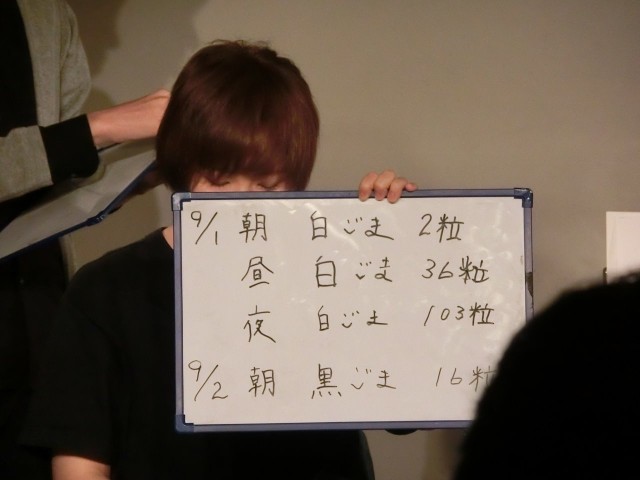 9/1 朝 白ごま 2粒
昼 白ごま 36粒
夜 白ごま 103粒
9/2 朝 黒ごま 16粒